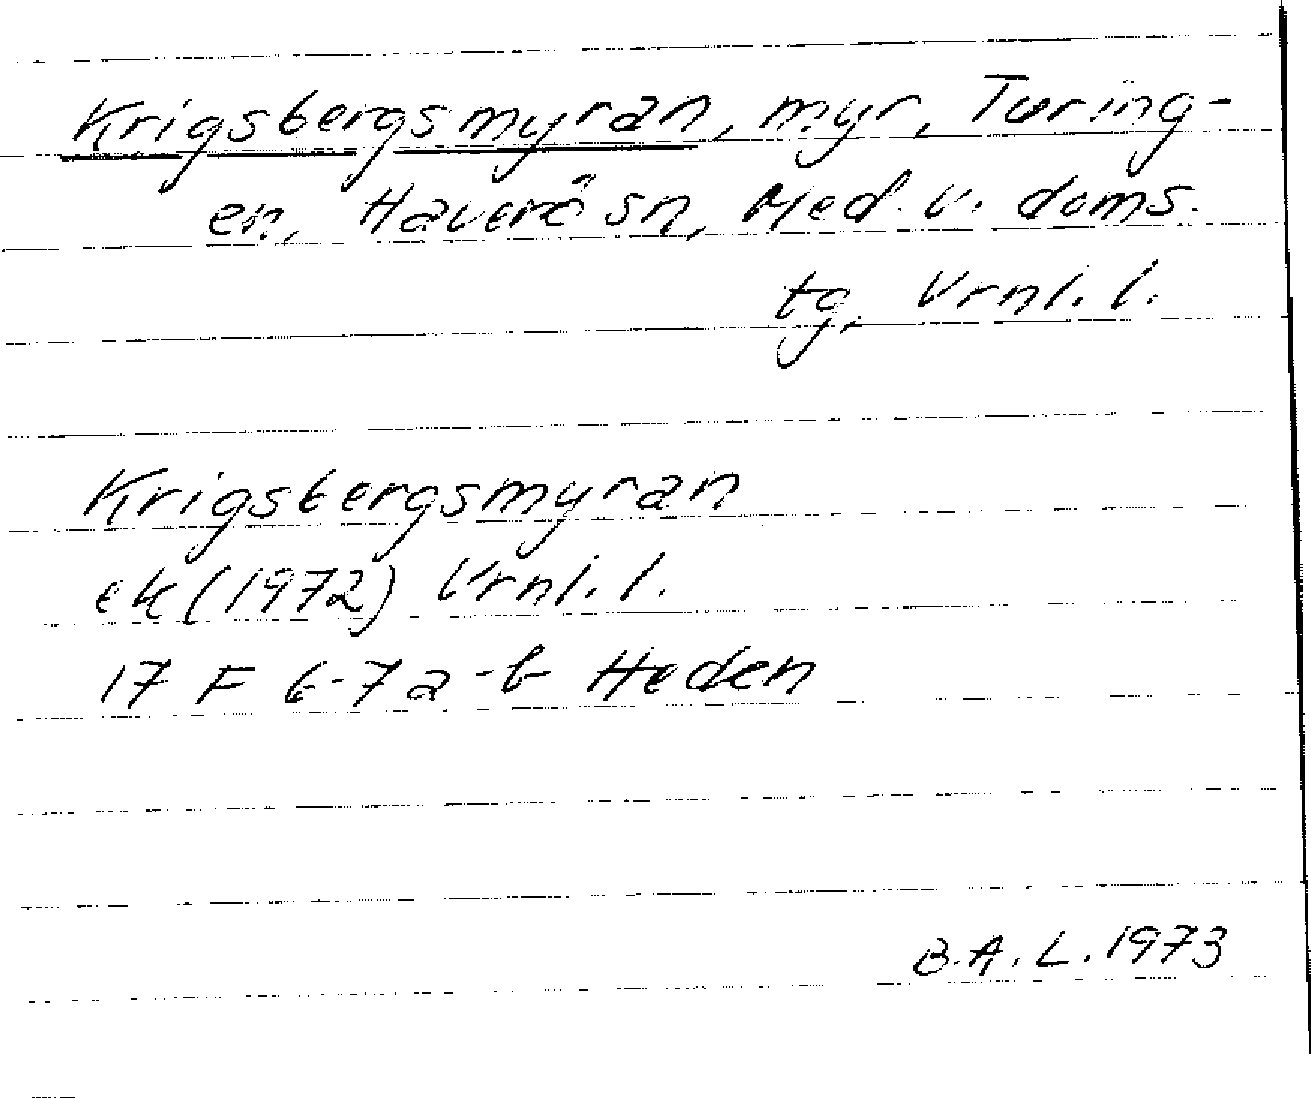 Krigsbergsmyran, myr, Turing-
en, Haverö sn, Med. v. doms.
tg, Vrnl. l.
Krigsbergsmyran
ek (1972) Vrnl. l.
17 F 6-7 a-b Heden
B.A.L. 1973